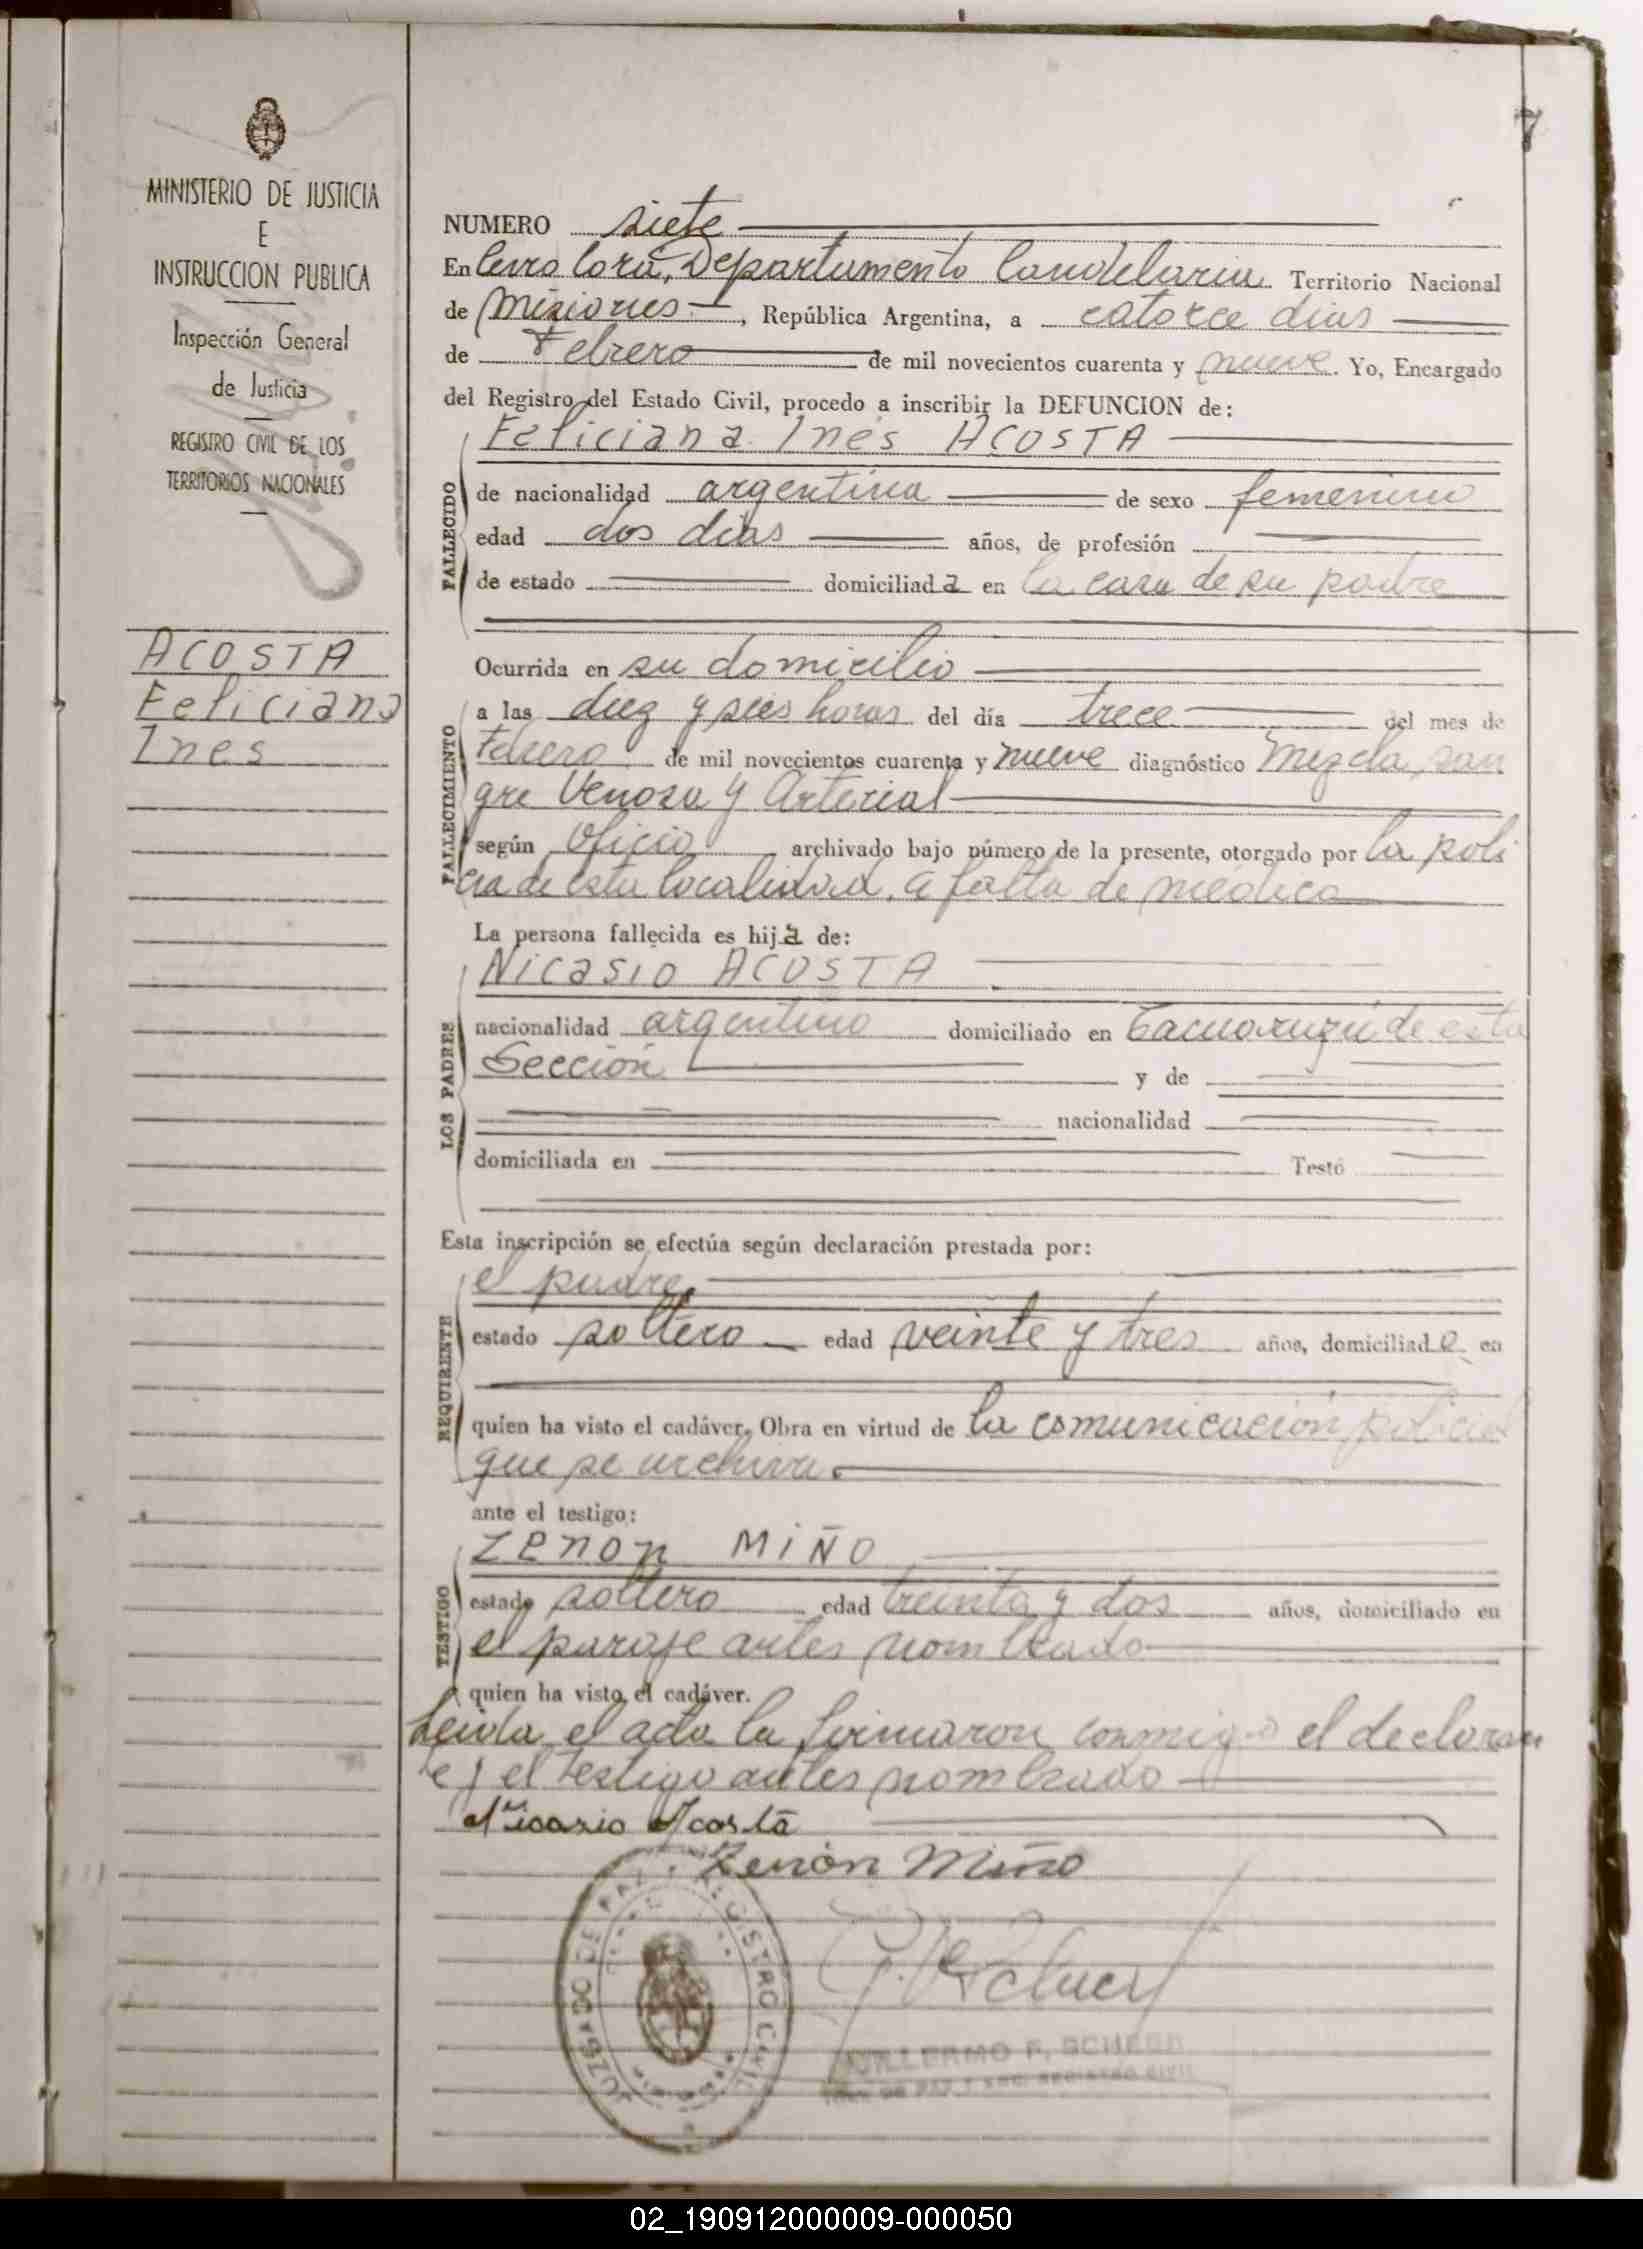 7
MINISTERIO DE JUSTICIA
E
INSTRUCCION PUBLICA
Inspección General
de Justicia
REGISTRO CIVIL DE LOS
TERRITORIOS NACIONALES
ACOSTA
Feliciana
Ines
NUMERO siete
En Cerro Corá, Departamento Candelaria Territorio Nacional
de Misiones, República Argentina, a catorce dias
de Febrero de mil novecientos cuarenta y nueve. Yo, Encargado
del Registro del Estado Civil, procedo a inscribir la DEFUNCION de:
Feliciana Inés ACOSTA
FALLECIDO
de nacionalidad argentina de sexo femenino
edad dos dias años, de profesión
de estado domiciliada en la casa de su padre
Ocurrida en su domicilio
FALLECIMIENTO
a las diez y seis horas del día trece del mes de
Febrero de mil novecientos cuarenta y nueve diagnóstico Mezcla, san
gre Venosa y Arterial
según Oficio archivado bajo número de la presente, otorgado por la poli
cia de esta localidad, a falta de médico
La persona fallecida es hija de:
Nicasio ACOSTA
LOS PADRES
nacionalidad argentino domiciliado en Tacuaruzú de esta
Sección y de
nacionalidad
domiciliada en Testó
Esta inscripción se efectúa según declaración prestada por:
el padre
REQUIRENTE
estado soltero edad veinte y tres años, domiciliado en
quien ha visto el cadáver. Obra en virtud de la comunicación policial
que se archiva.
ante el testigo:
Zenon MIÑO
TESTIGO
estado soltero edad treinta y dos años, domiciliado en
el paraje antes nombrado
quien ha visto el cadáver.
Leida el acta la firmaron conmigo el declaran
te y el testigo antes nombrado
Nicasio Acosta
Zenón Miño
JUZGADO DE PAZ Y REGISTRO CIVIL
GUILLERMO F.
JUEZ DE PAZ Y ENC. REGISTRO CIVIL
02_190912000009-000050